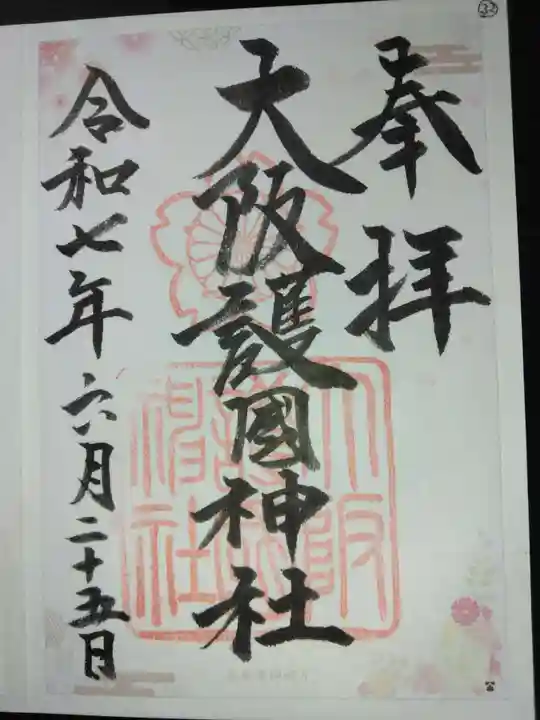 ㉜
奉拝
大阪護國神社
令和七年六月二十五日